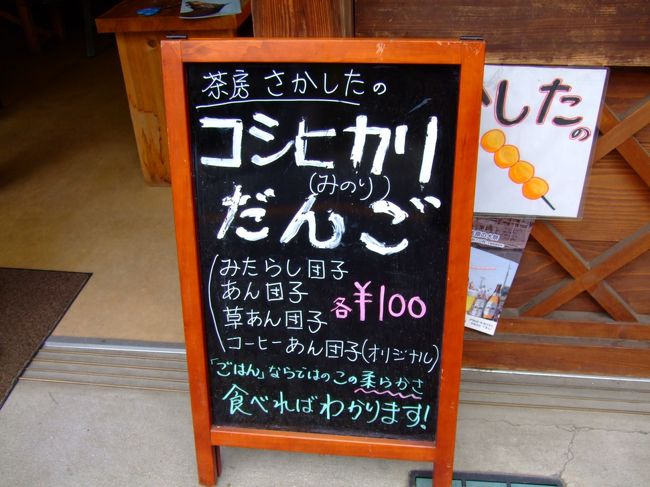 茶房 さかしたの
コシヒカリ
(みのり)
だんご
みたらし団子
あん団子
草あん団子
コーヒーあん団子(オリジナル)
各¥100
「ごはん」ならではのこの柔らかさ
食べればわかります!
かしたの